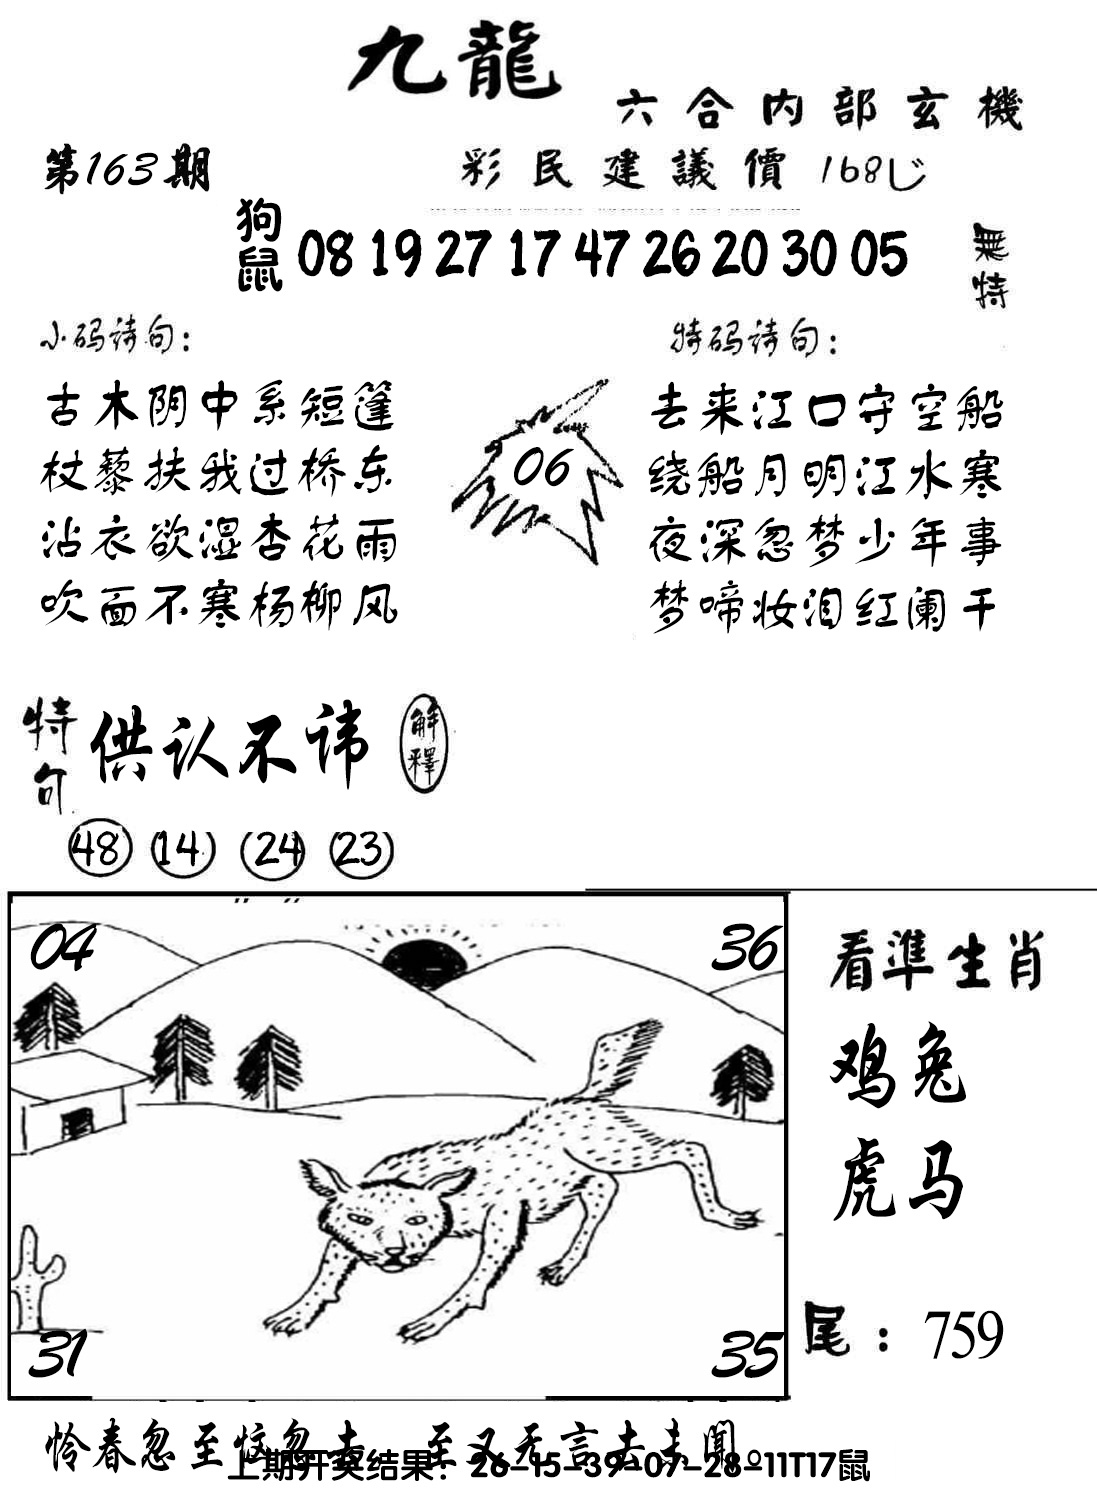 九龍
六合内部玄機
第163期
彩民建議價168
狗鼠 08 19 27 17 47 26 20 30 05
無特
小码诗句：
特码诗句：
古木阴中系短篷
杖藜扶我过桥东
沾衣欲湿杏花雨
吹面不寒杨柳风
06
去来江口守空船
绕船月明江水寒
夜深忽梦少年事
梦啼妆泪红阑干
特句 供认不讳 解釋
48 14 24 23
04 36
31 35
看準生肖
鸡兔
虎马
尾：759
怜春忽至恼忽去 至又无言去未聞。
上期开奖结果：26-15-39-07-28-11T17鼠